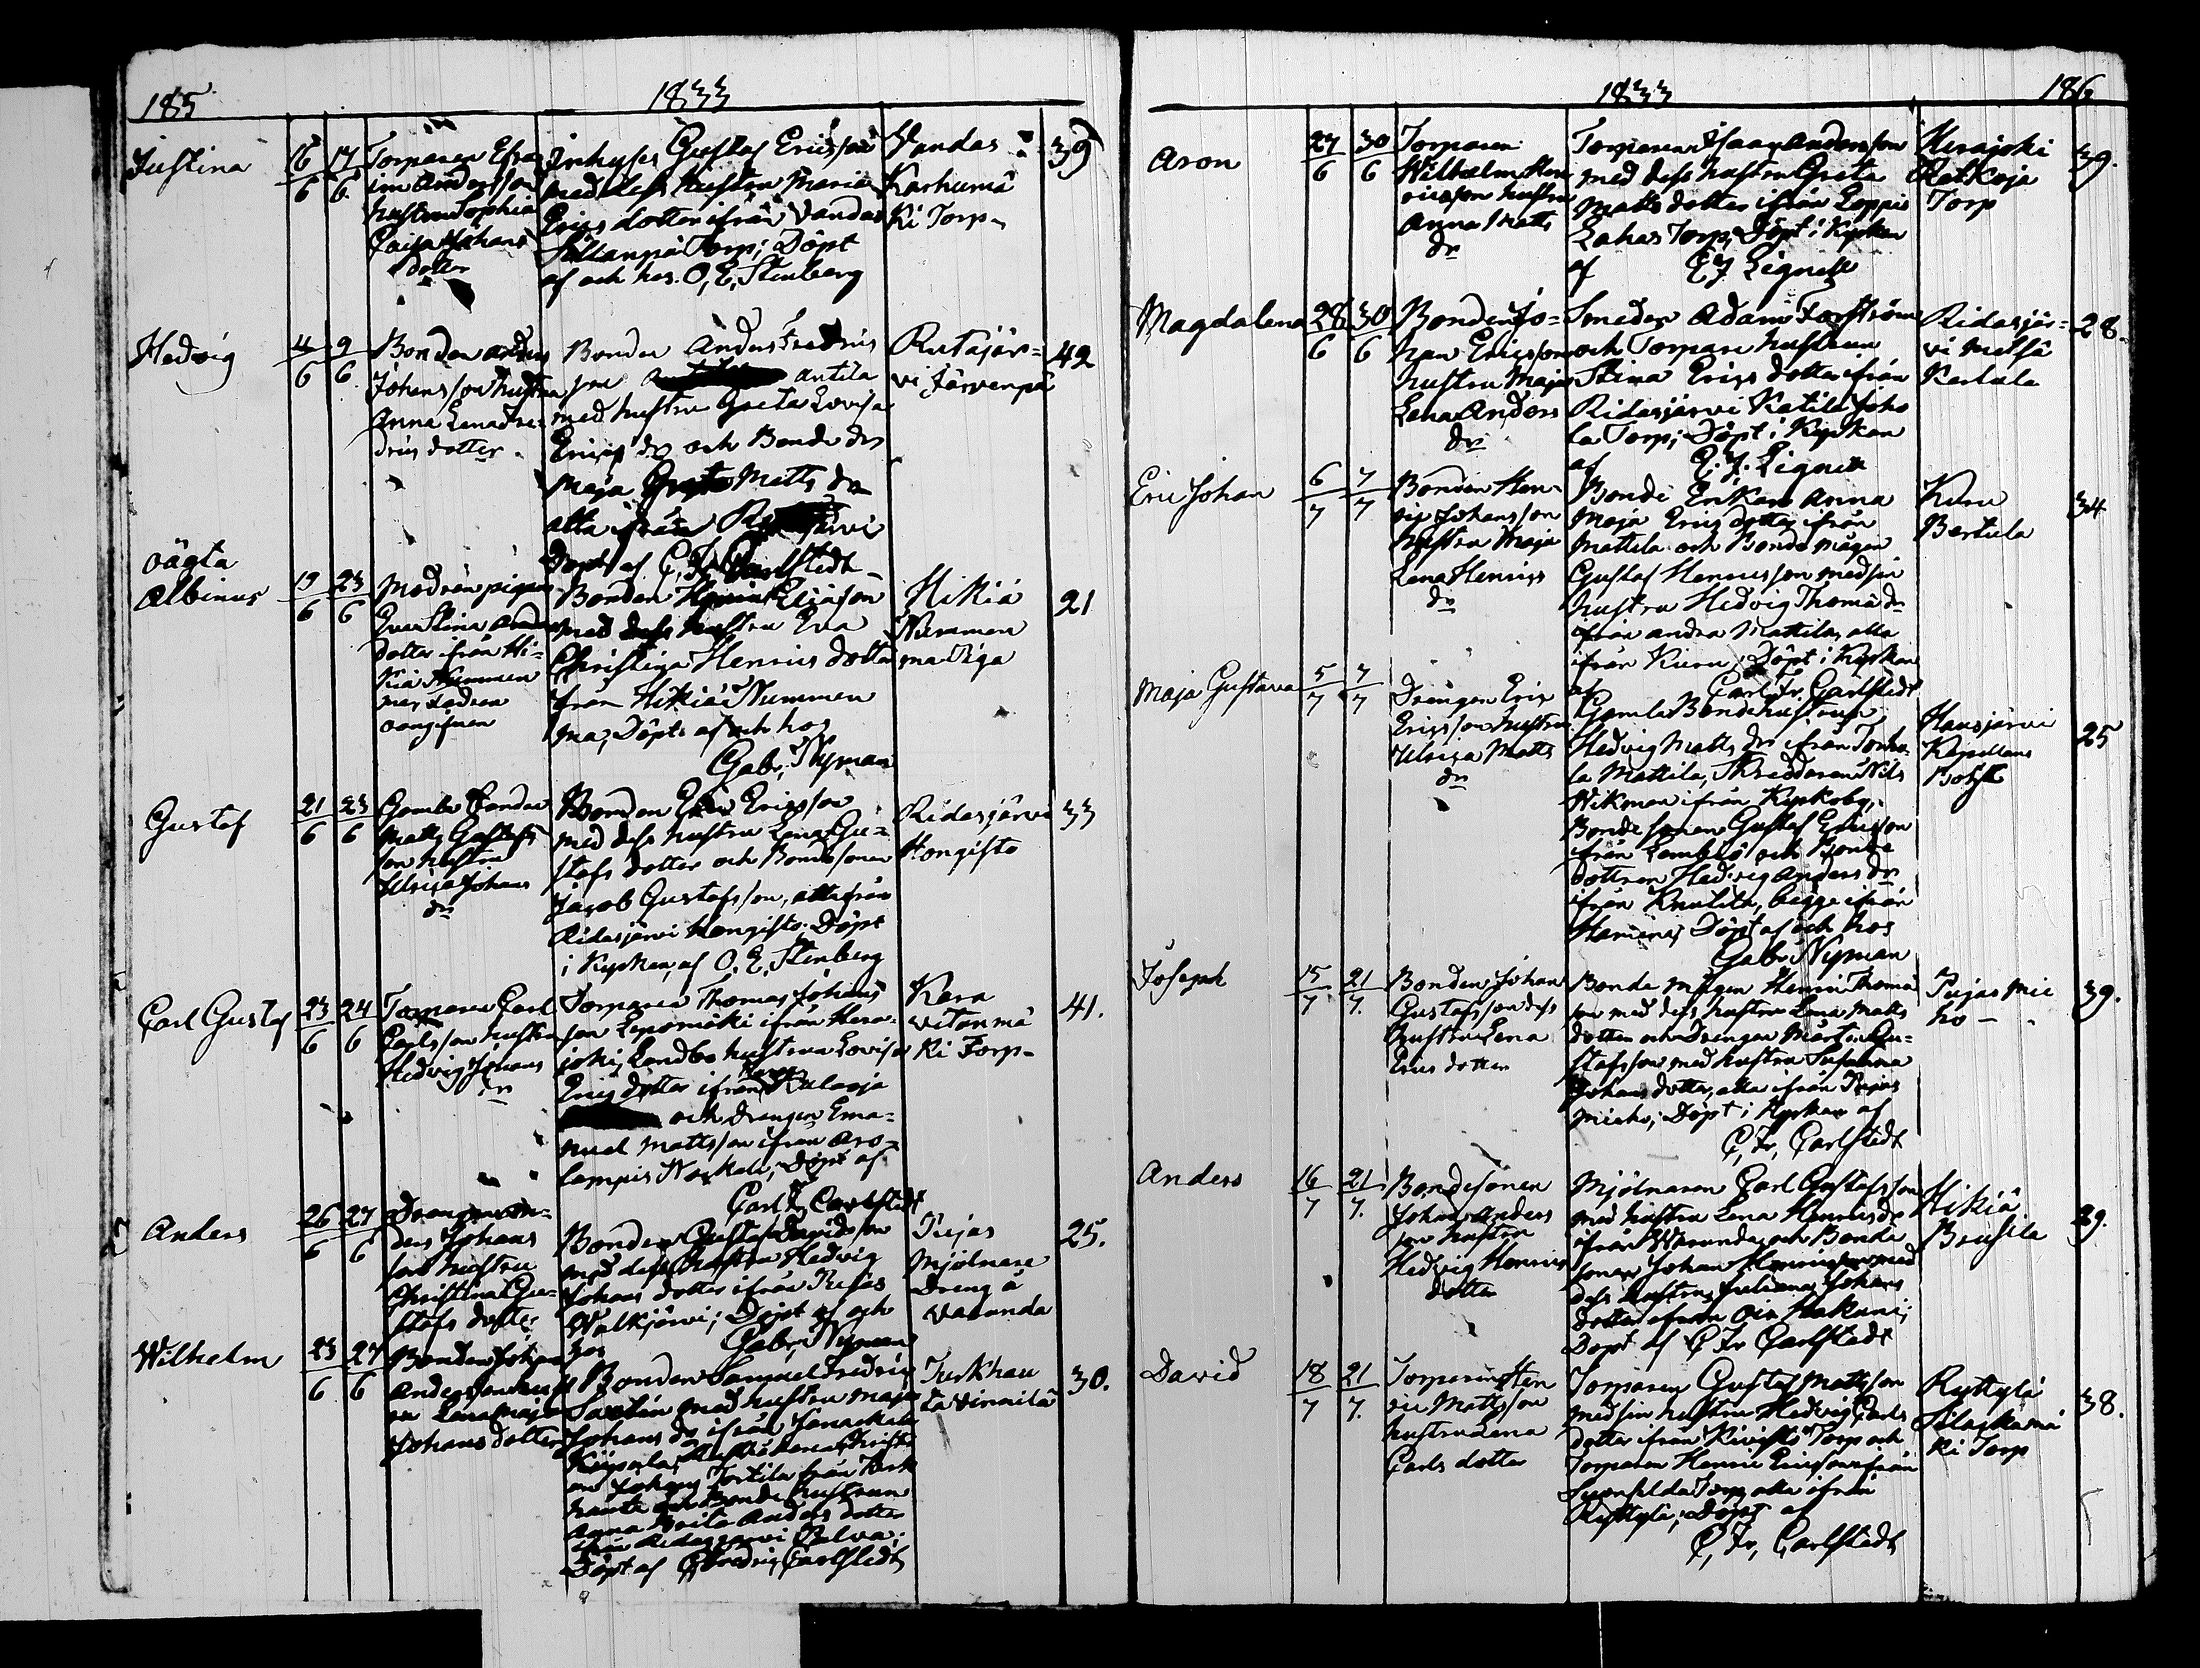 185
1833
Justina
16/6
17/6
Torparen Efra
im Andersson
hustru Sophia
Caisa Johans
dotter
Inhyses Gustaf Ericsson
med dess hustru Maria
Erics dotter ifrån Vandas
Sillanpä Torp; Döpt
af och hos O, E, Stenberg
Vandas
Karhumä
ki Torp
39
Hedvig
4/6
9/6
Bonden Anders
Johansson hustru
Anna Lena Fre
drics dotter
Bonden Anders Fredrics
son Antila
med hustru Greta Lovisa
Erics dr och Bonde dr
Maja Matts dr
alla ifrån järvi
Döpt af C, Fr, Carlstedt
Rutajär-
vi Järvenpä
42
oägta
Albinus
19/6
23/6
Modren pigan
Eva Stina Anders
dotter ifrån Hi-
kiä Nummen
maa fadren
oangifven
Bonden Henric Eliasson
med dess hustru Eva
Christina Henrics dotter
från Hikiä Nummen
ma, Döpt af och hos
Gabr, Nyman
Hikiä
Nummen
maa
21
Gustaf
21/6
23/6
Gamla Bonden
Matts Gustafs
son hustru
Ulrica Johans
dr
Bonden Eric Ericsson
med dess hustru Lena Gu-
stafs dotter och Bondesonen
Jacob Gustafsson, alla från
Ridasjärvi Hongisto; Döpt
i Kyrkan af O. E. Stenberg
Ridasjärvi
Hongisto
33
Carl Gustaf
23/6
24/6
Torparen Carl
Carlsson hustru
Hedvig Johans
dr
Torparen Thomas Johans
son Lepomäki ifrån Hera-
joki, Landbo hustrun Lovisa
Erics dotter ifrån Kara
och drengen Ema-
nuel Mattsson ifrån Aro-
lampis Döpt af
Carl Fr, Carlstedt
Kara
vitanmä
ki Torp
41.
Anders
26/6
27/6
Drengen An-
ders Johans
son hustru
Christina Gu-
stafs dotter
Bonden Gustaf Davidsson
med dess hustru Hedvig
Johans dotter ifrån Pujas
Walkjärvi; Döpt af och
hos Gabr, Nyman
Pujas
Mjölnare
Dreng å
Varunda
25.
Wilhelm
23/6
27/6
Bonden Johan
Andersson hust
ru Lena Maja
Johans dotter
Bonden Samuel Fredric
med hustru Maja
Johans dr ifrån Janackala
Johans från Turk
hauta och Bonde hustrun
Anna Brita Anders dotter
ifrån Ridasjärvi
Döpt af C, Fredric, Carlstedt
Turkhau
ta
30.
1833
186
Aron
27/6
30/6
Torparen
Wilhelm Hen
ricsson hustru
Anna Matts
dr
Torparen Isaac Andersson
med dess hustru Greta
Matts dotter ifrån Loppis
Lahas Torp, Döpt i Kyrkan
af E, J, Lignell
Herajoki
Ratkoja
Torp
39.
Magdalena
28/6
30/6
Bonden Jo-
han Ericsson
hustru Maja
Lena Anders
dr
Smeden Adam Forsström
och Torpare hustrun
Stina Erics dotter ifrån
Ridasjärvi Katila Joho
la Torp; Döpt i Kyrkan
af E. J. Lignell
Ridasjär-
vi
28.
Eric Johan
6/7
7/7
Bonden Hen-
ric Johansson
hustru Maja
Lena Henrics
dr
Bonde Enkan Anna
Maja Erics dotter ifrån
Mattila och Bonde mågen
Gustaf Henricsson med sin
hustru Hedvig Thomæ dr
ifrån andra Mattila, alla
ifrån Kuru, Döpt i Kyrkan
af Carl Fr, Carlstedt
Kuru
Bertula
34
Maja Gustava
5/7
7/7
Drengen Eric
Ericsson hustru
Ulrica Matts
dr
Gamla Bonde hustrun
Hedvig Matts dr ifrån
la Mattila, Skreddaren Nils
Wikman ifrån Kyrkoby,
Bonde sonen Gustaf Ericsson
ifrån och Bonde
dottren Hedvig Anders dr
ifrån Knutila, begge ifrån
Döpt af och hos
Gabr, Nyman
Hausjärvi
Kapellans
Bohl
25
Joseph
15/7
21/7.
Bonden Johan
Gustafsson dess
hustru Lena
Erics dotter
Bonde mågen Henric Thomæ
son med dess hustru Lena Matts
dotter och Drengen Mårten Gu-
stafsson med hustru Susanna
Johans dotter, alla ifrån Pujas
Mieho; Döpt i Kyrkan af
C, Fr, Carlstedt
Pujas Mie
ho
39.
Anders
16/7
21/7.
Bondesonen
Johan Anders
son hustru
Hedvig Henrics
dotter
Mjölnaren Carl Gustafsson
med hustru Lena Henrics dr
ifrån Warunda, och Bonde
sonen Johan Henricsson med
dess hustru Juliana Johans
dotter ifrån Oix Hakuni;
Döpt af C Fr Carlstedt
Hikiä
Brusila
29.
David
18/7
21/7.
Torparen Hen
ric Mattsson
hustru Lena
Carls dotter
Torparen Gustaf Mattsson
med sin hustru Hedvig Carls
dotter ifrån Kivistö Torp och
Torparen Henric Ericsson ifrån
Torp, alla ifrån
Ryttylä; Döpt af
C, Fr, Carlstedt
Ryttylä
ki Torp
38.